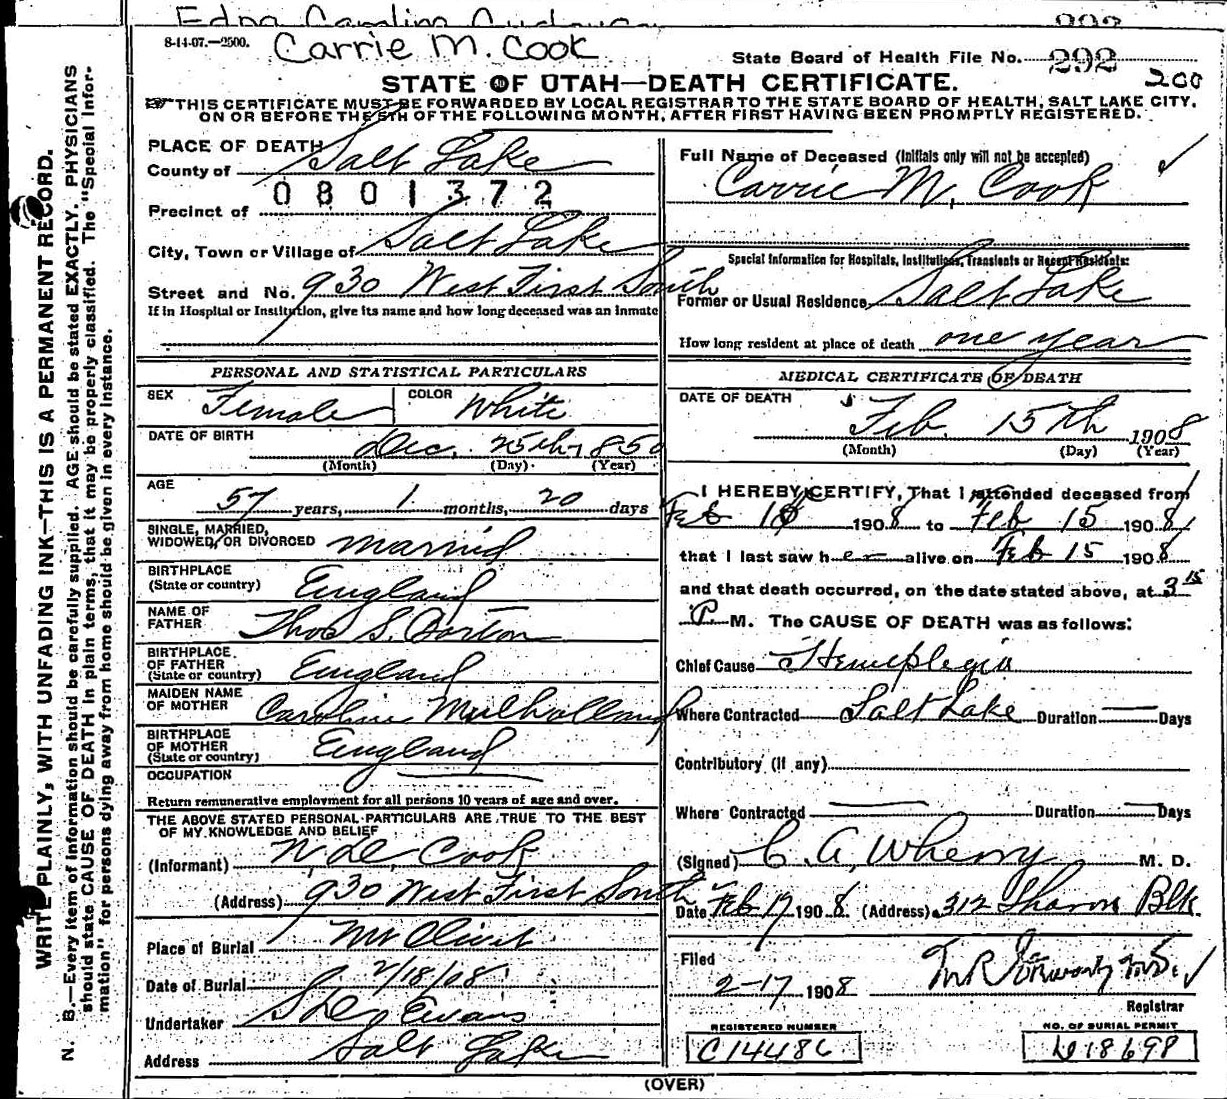 8-14-07.—2500. Carrie M. Cook
State Board of Health File No. 292
200
STATE OF UTAH—DEATH CERTIFICATE.
THIS CERTIFICATE MUST BE FORWARDED BY LOCAL REGISTRAR TO THE STATE BOARD OF HEALTH, SALT LAKE CITY,
ON OR BEFORE THE 5TH OF THE FOLLOWING MONTH, AFTER FIRST HAVING BEEN PROMPTLY REGISTERED.
WRITE PLAINLY, WITH UNFADING INK—THIS IS A PERMANENT RECORD.
N. B.—Every item of information should be carefully supplied. AGE should be stated EXACTLY. PHYSICIANS
should state CAUSE OF DEATH in plain terms, that it may be properly classified. The "Special Infor-
mation" for persons dying away from home should be given in every instance.
PLACE OF DEATH
County of Salt Lake
0801372
Precinct of
City, Town or Village of Salt Lake
Street and No. 930 West First South
If in Hospital or Institution, give its name and how long deceased was an inmate
PERSONAL AND STATISTICAL PARTICULARS
SEX Female COLOR White
DATE OF BIRTH Dec. 25th, 1850
(Month) (Day) (Year)
AGE
57 years, 1 months, 20 days
SINGLE, MARRIED,
WIDOWED, OR DIVORCED Married
BIRTHPLACE
(State or country) England
NAME OF
FATHER Thos S. Barton
BIRTHPLACE
OF FATHER
(State or country) England
MAIDEN NAME
OF MOTHER Caroline Mulholland
BIRTHPLACE
OF MOTHER
(State or country) England
OCCUPATION
Return remunerative employment for all persons 10 years of age and over.
THE ABOVE STATED PERSONAL PARTICULARS ARE TRUE TO THE BEST
OF MY KNOWLEDGE AND BELIEF
(Informant) Cook
(Address) 930 West First South
Place of Burial Mt Olivet
Date of Burial 2/18/08
Undertaker Evans
Address Salt Lake
Full Name of Deceased (Initials only will not be accepted)
Carrie M. Cook
Special Information for Hospitals, Institutions, Transients or Recent Residents:
Former or Usual Residence Salt Lake
How long resident at place of death one year
MEDICAL CERTIFICATE OF DEATH
DATE OF DEATH
Feb. 15th 1908
(Month) (Day) (Year)
I HEREBY CERTIFY, That I attended deceased from
Feb 1908 to Feb 15 1908
that I last saw her alive on Feb 15 1908
and that death occurred, on the date stated above, at 3 15
P. M. The CAUSE OF DEATH was as follows:
Chief Cause Hemiplegia
Where Contracted Salt Lake Duration — Days
Contributory (if any)
Where Contracted — Duration — Days
(Signed) C. A. Wherry M. D.
Date Feb 17 1908 (Address) 312 Sharon Blk.
Filed
2-17 1908
Registrar
REGISTERED NUMBER
C14486
NO. OF BURIAL PERMIT
18698
(OVER)